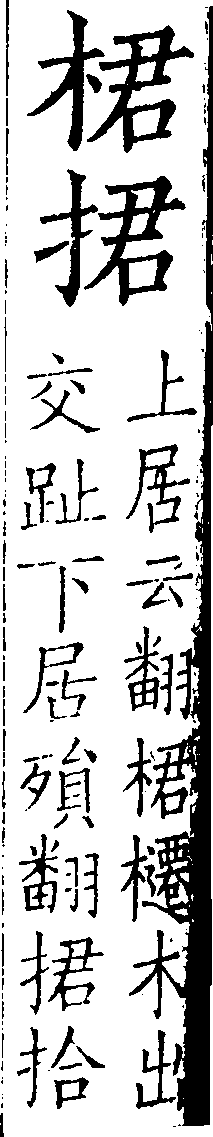 桾捃
上居云翻桾櫏木出
交趾下居殞翻捃拾